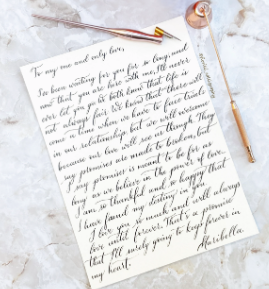 To my one and only love,
I've been waiting for you for so long, and
now that you are here with me, I'll never
ever let you go. We both know that life is
not always fair. We know that there will
come a time when we have to face trials
in our relationship but we will overcome
because our love will see us through. They
say promises are made to be broken, but
my promises is meant to be for as
long as we believe in the power of love.
I am so thankful and so happy that
I have found my destiny in you.
I love you so much and will always
love until forever. That's a promise
that I'll surely going to keep forever in
my heart.
Maribella